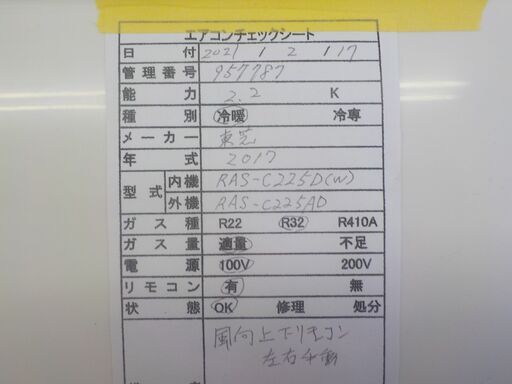 エアコンチェックシート
日 付 2021 1 2 117
管理番号 957787
能 力 2.2 K
種 別 冷暖 冷専
メーカー 東芝
年 式 2017
型 式 内機 RAS-C225D(W)
外機 RAS-C225AD
ガ ス 種 R22 R32 R410A
ガ ス 量 適量 不足
電 源 100V 200V
リモコン 有 無
状 態 OK 修理 処分
風向上下リモコン
左右手動